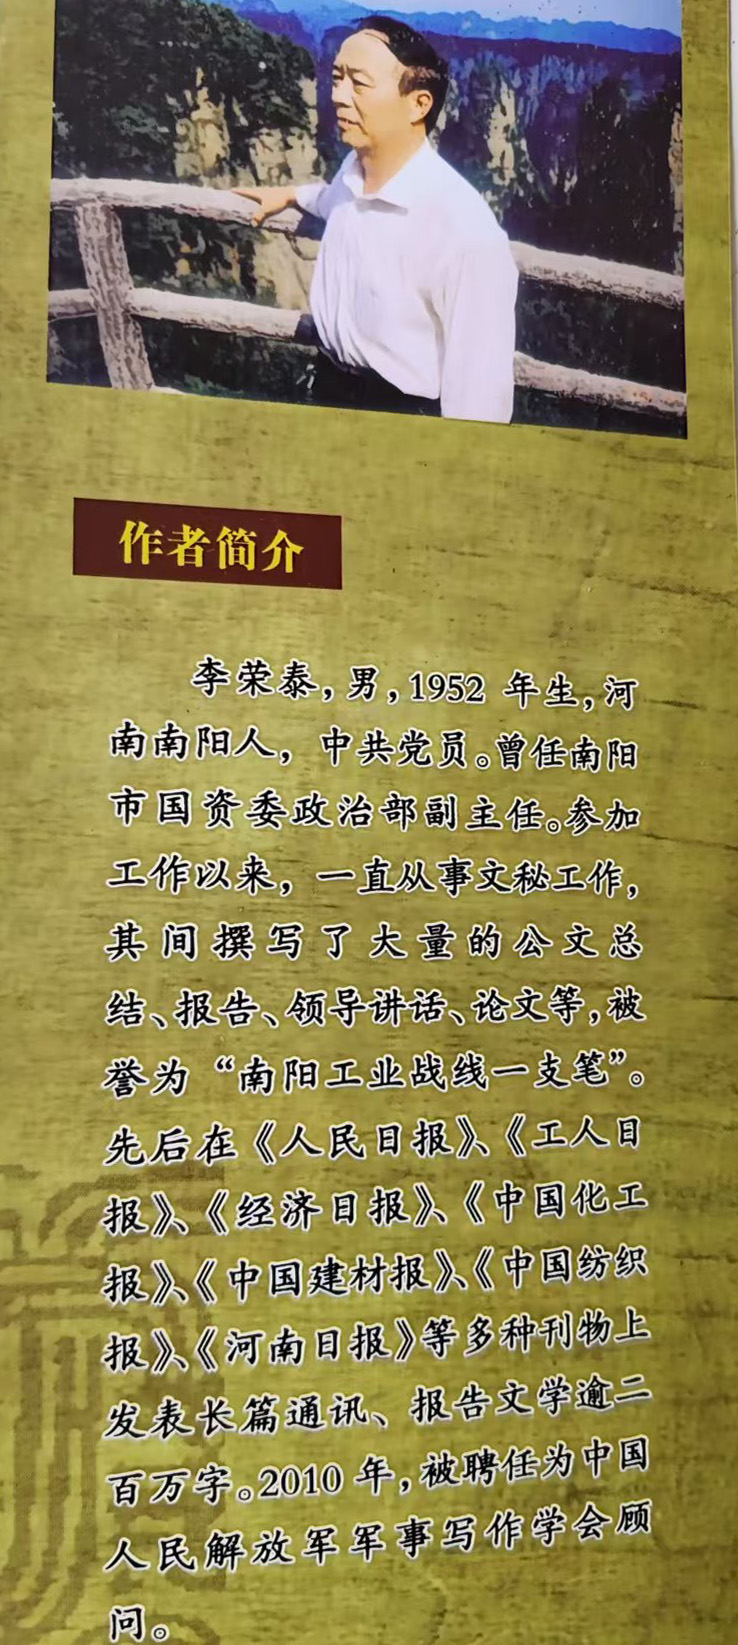 作者简介
李荣泰,男,1952 年生,河
南南阳人,中共党员。曾任南阳
市国资委政治部副主任。参加
工作以来,一直从事文秘工作,
其间撰写了大量的公文总
结、报告、领导讲话、论文等,被
誉为“南阳工业战线一支笔”。
先后在《人民日报》、《工人日
报》、《经济日报》、《中国化工
报》、《中国建材报》、《中国纺织
报》、《河南日报》等多种刊物上
发表长篇通讯、报告文学逾二
百万字。2010 年,被聘任为中国
人民解放军军事写作学会顾
问。